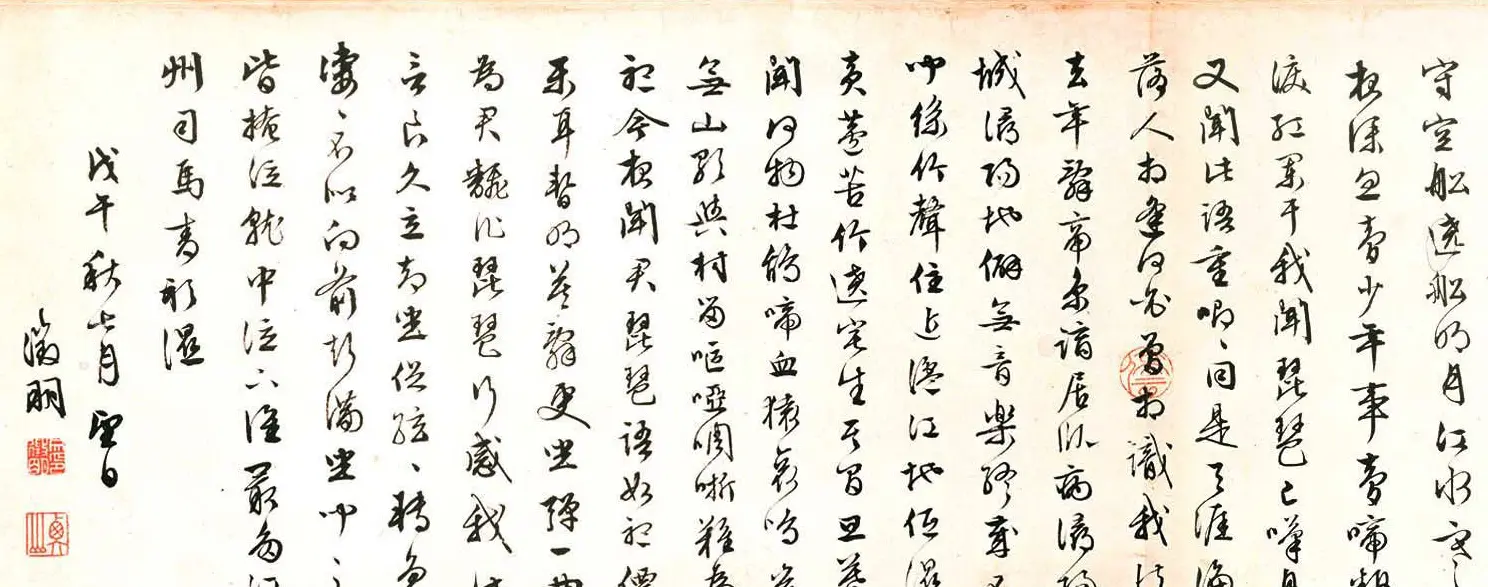 守空船遶船明月江水寒
夜深忽夢少年事夢啼粧
淚紅闌干我聞琵琶已嘆息
又聞此語重唧〻同是天涯淪
落人相逢何必曾相識我從
去年辭帝京謫居臥病潯陽
城潯陽地僻無音樂終歲不
聞絲竹聲住近湓江地低濕
黃蘆苦竹遶宅生其間旦暮
聞何物杜鵑啼血猿哀鳴豈
無山歌與村笛嘔啞啁哳難為
聽今夜聞君琵琶語如聽僊
樂耳暫明莫辭更坐彈一曲
為君翻作琵琶行感我此
言良久立却坐促絃〻轉急
凄〻不似向前聲滿坐聞之
皆掩泣就中泣下誰最多江
州司馬青衫濕
戊午秋七月望日
徵明